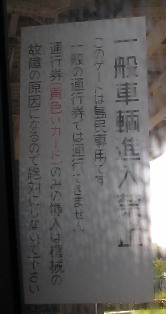 一般車輌進入禁止
このゲートは島民専用です。
一般の通行券では通行できません。
通行券(黄色いカード)のみの挿入は機械の
故障の原因になるので絶対にしないで下さい